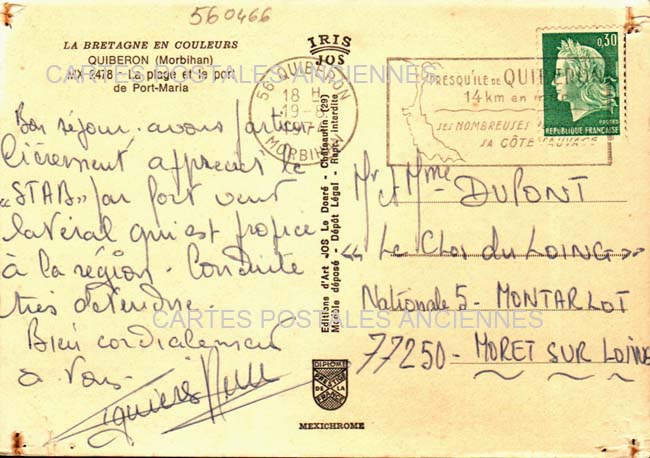 560466
LA BRETAGNE EN COULEURS
QUIBERON (Morbihan)
MX 2478 - La plage et le port
de Port-Maria
CARTES POSTALES ANCIENNES
IRIS
JOS
56 QUIBERON
18 H
19-8
MORBIHAN
PRESQU'ILE DE QUIBERON
14 km en
SES NOMBREUSES
SA CÔTE SAUVAGE
0,30
POSTES
REPUBLIQUE FRANÇAISE
Bon séjour. avons particu-
lièrement apprécié le
«STAB» par fort vent
latéral qui est propice
à la région. Conduite
très détendue.
Bien cordialement
à vous.
Editions d'Art JOS Le Doaré - Châteaulin (29)
Modèle déposé - Dépôt Légal - Repr. interdite
Mr et Mme DUPONT
« Le Clos du LOING »
Nationale 5 - MONTARLOT
77250 - MORET SUR LOING
CARTES POSTALES ANCIENNES
DIPLOME
PRESTIGE
DE LA
FRANCE
MEXICHROME